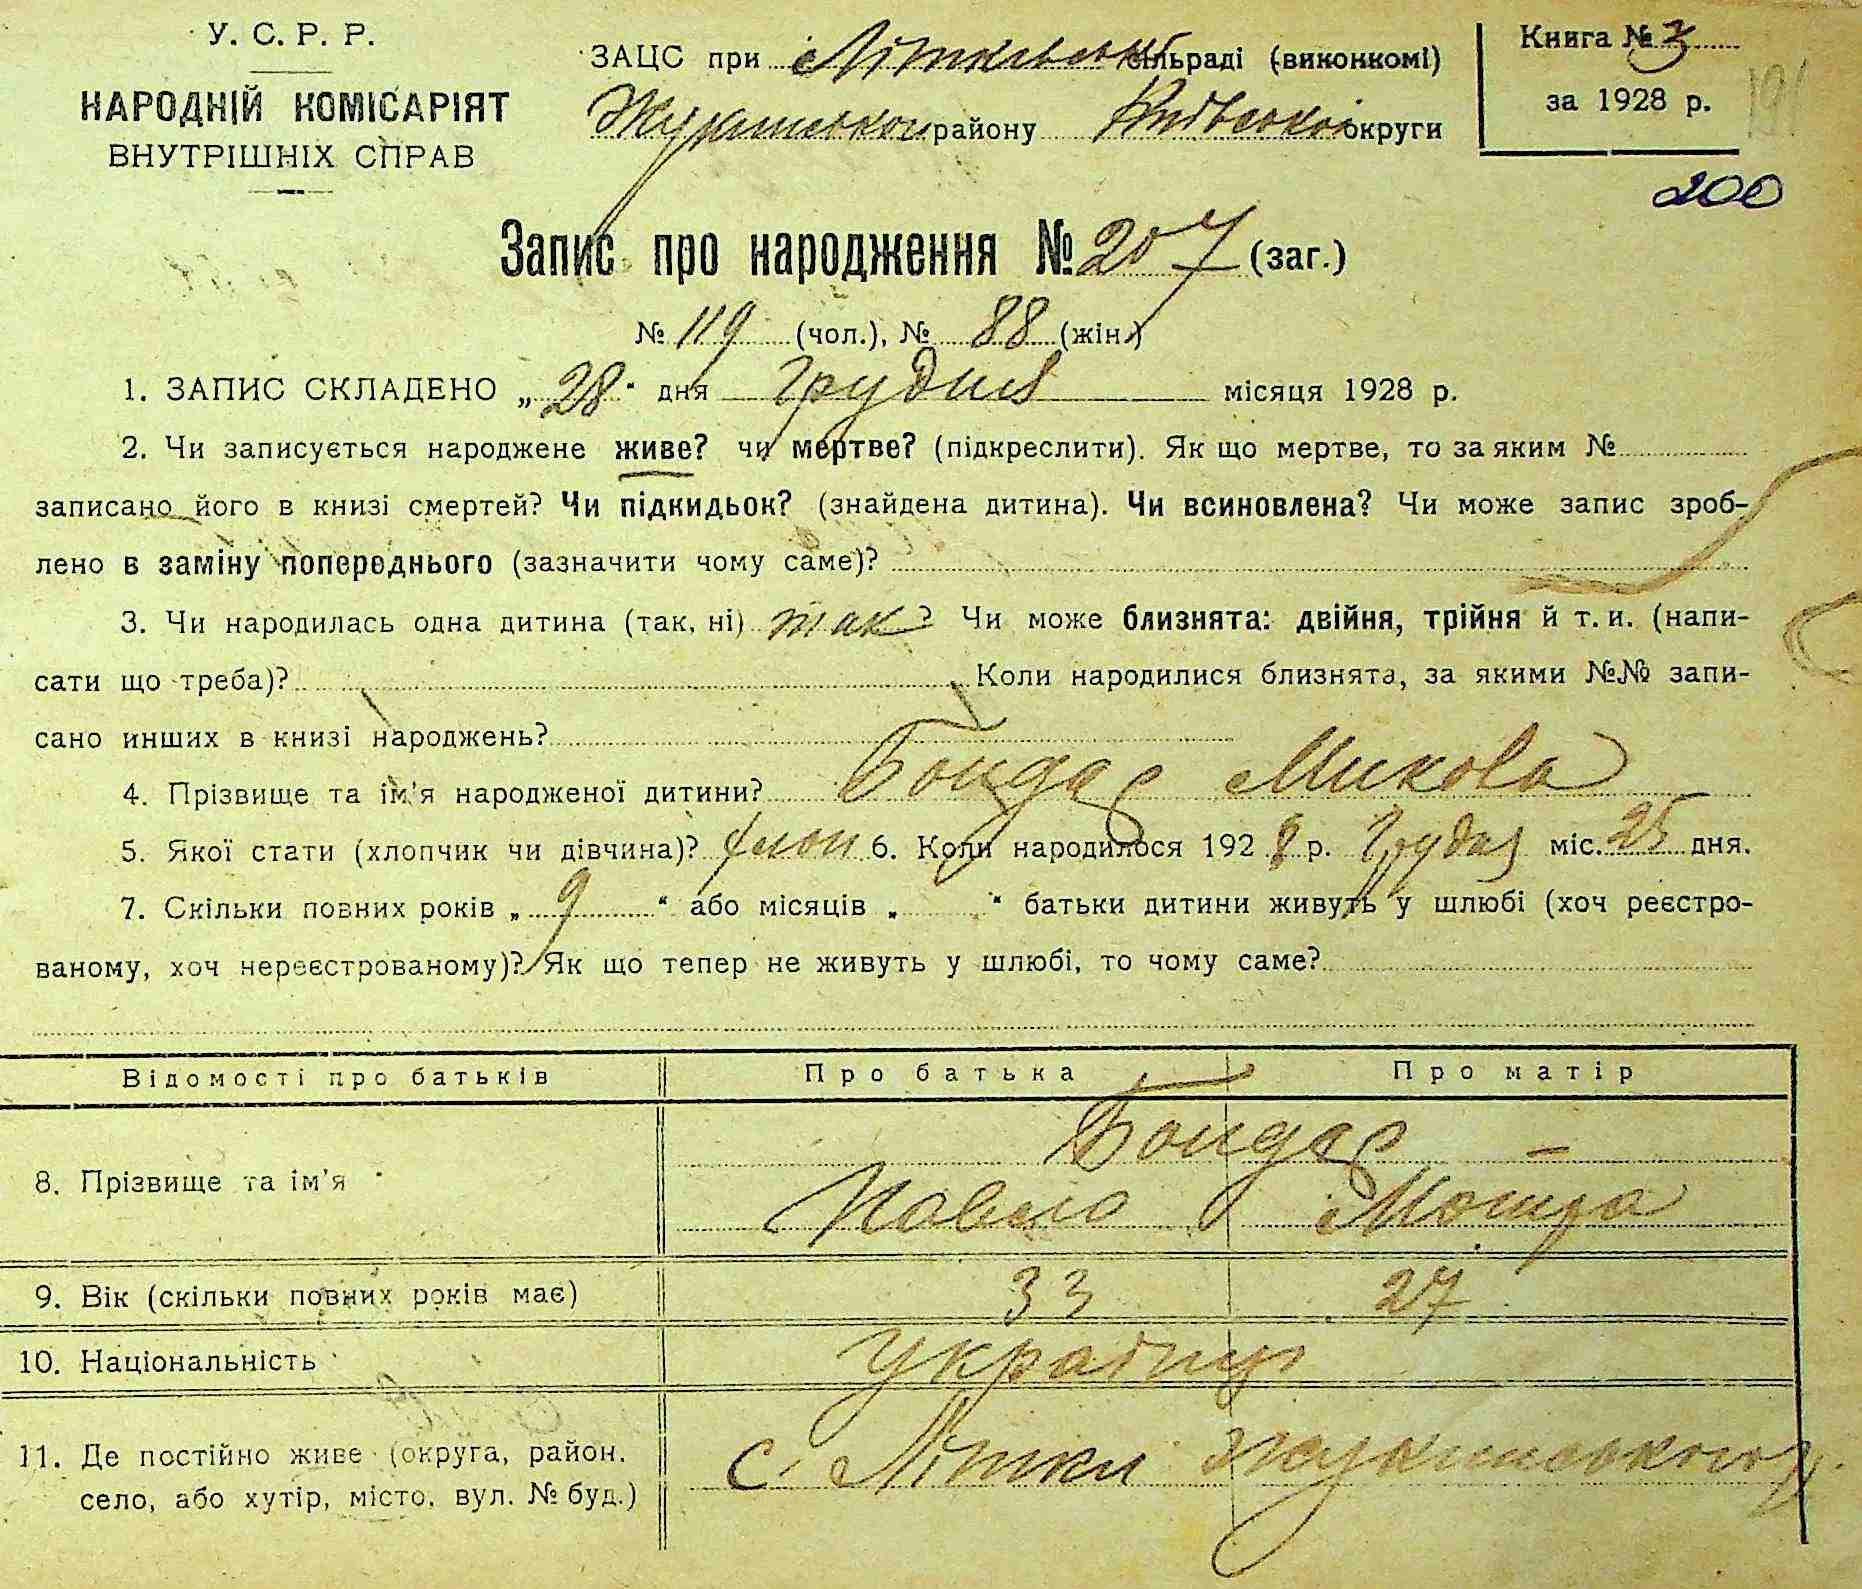 У. С. Р. Р.
НАРОДНІЙ КОМІСАРІЯТ
ВНУТРІШНІХ СПРАВ
ЗАЦС при Літківській сільраді (виконкомі)
району Київської округи
Книга № 3
за 1928 р.
191
200
Запис про народження № 207 (заг.)
№ 119 (чол.), № 88 (жін.)
1. ЗАПИС СКЛАДЕНО „ 28 " дня грудня місяця 1928 р.
2. Чи записується народжене живе? чи мертве? (підкреслити). Як що мертве, то за яким №
записано його в книзі смертей? Чи підкидьок? (знайдена дитина). Чи всиновлена? Чи може запис зроб-
лено в заміну попереднього (зазначити чому саме)?
3. Чи народилась одна дитина (так, ні) так ? Чи може близнята: двійня, трійня й т. и. (напи-
сати що треба)? Коли народилися близнята, за якими №№ запи-
сано инших в книзі народжень?
4. Прізвище та ім'я народженої дитини? Бондар Микола
5. Якої стати (хлопчик чи дівчина)? хлоп 6. Коли народилося 192 8 р. Грудня міс. 25 дня.
7. Скільки повних років „ 9 " або місяців „ " батьки дитини живуть у шлюбі (хоч реєстро-
ваному, хоч нереєстрованому)? Як що тепер не живуть у шлюбі, то чому саме?
Відомості про батьків Про батька Про матір
8. Прізвище та ім'я Бондар –
Павло Мотря
9. Вік (скільки повних років має) 33 27
10. Національність українці
11. Де постійно живе (округа, район,
село, або хутір, місто, вул. № буд.) с. Літки Жукинського р.